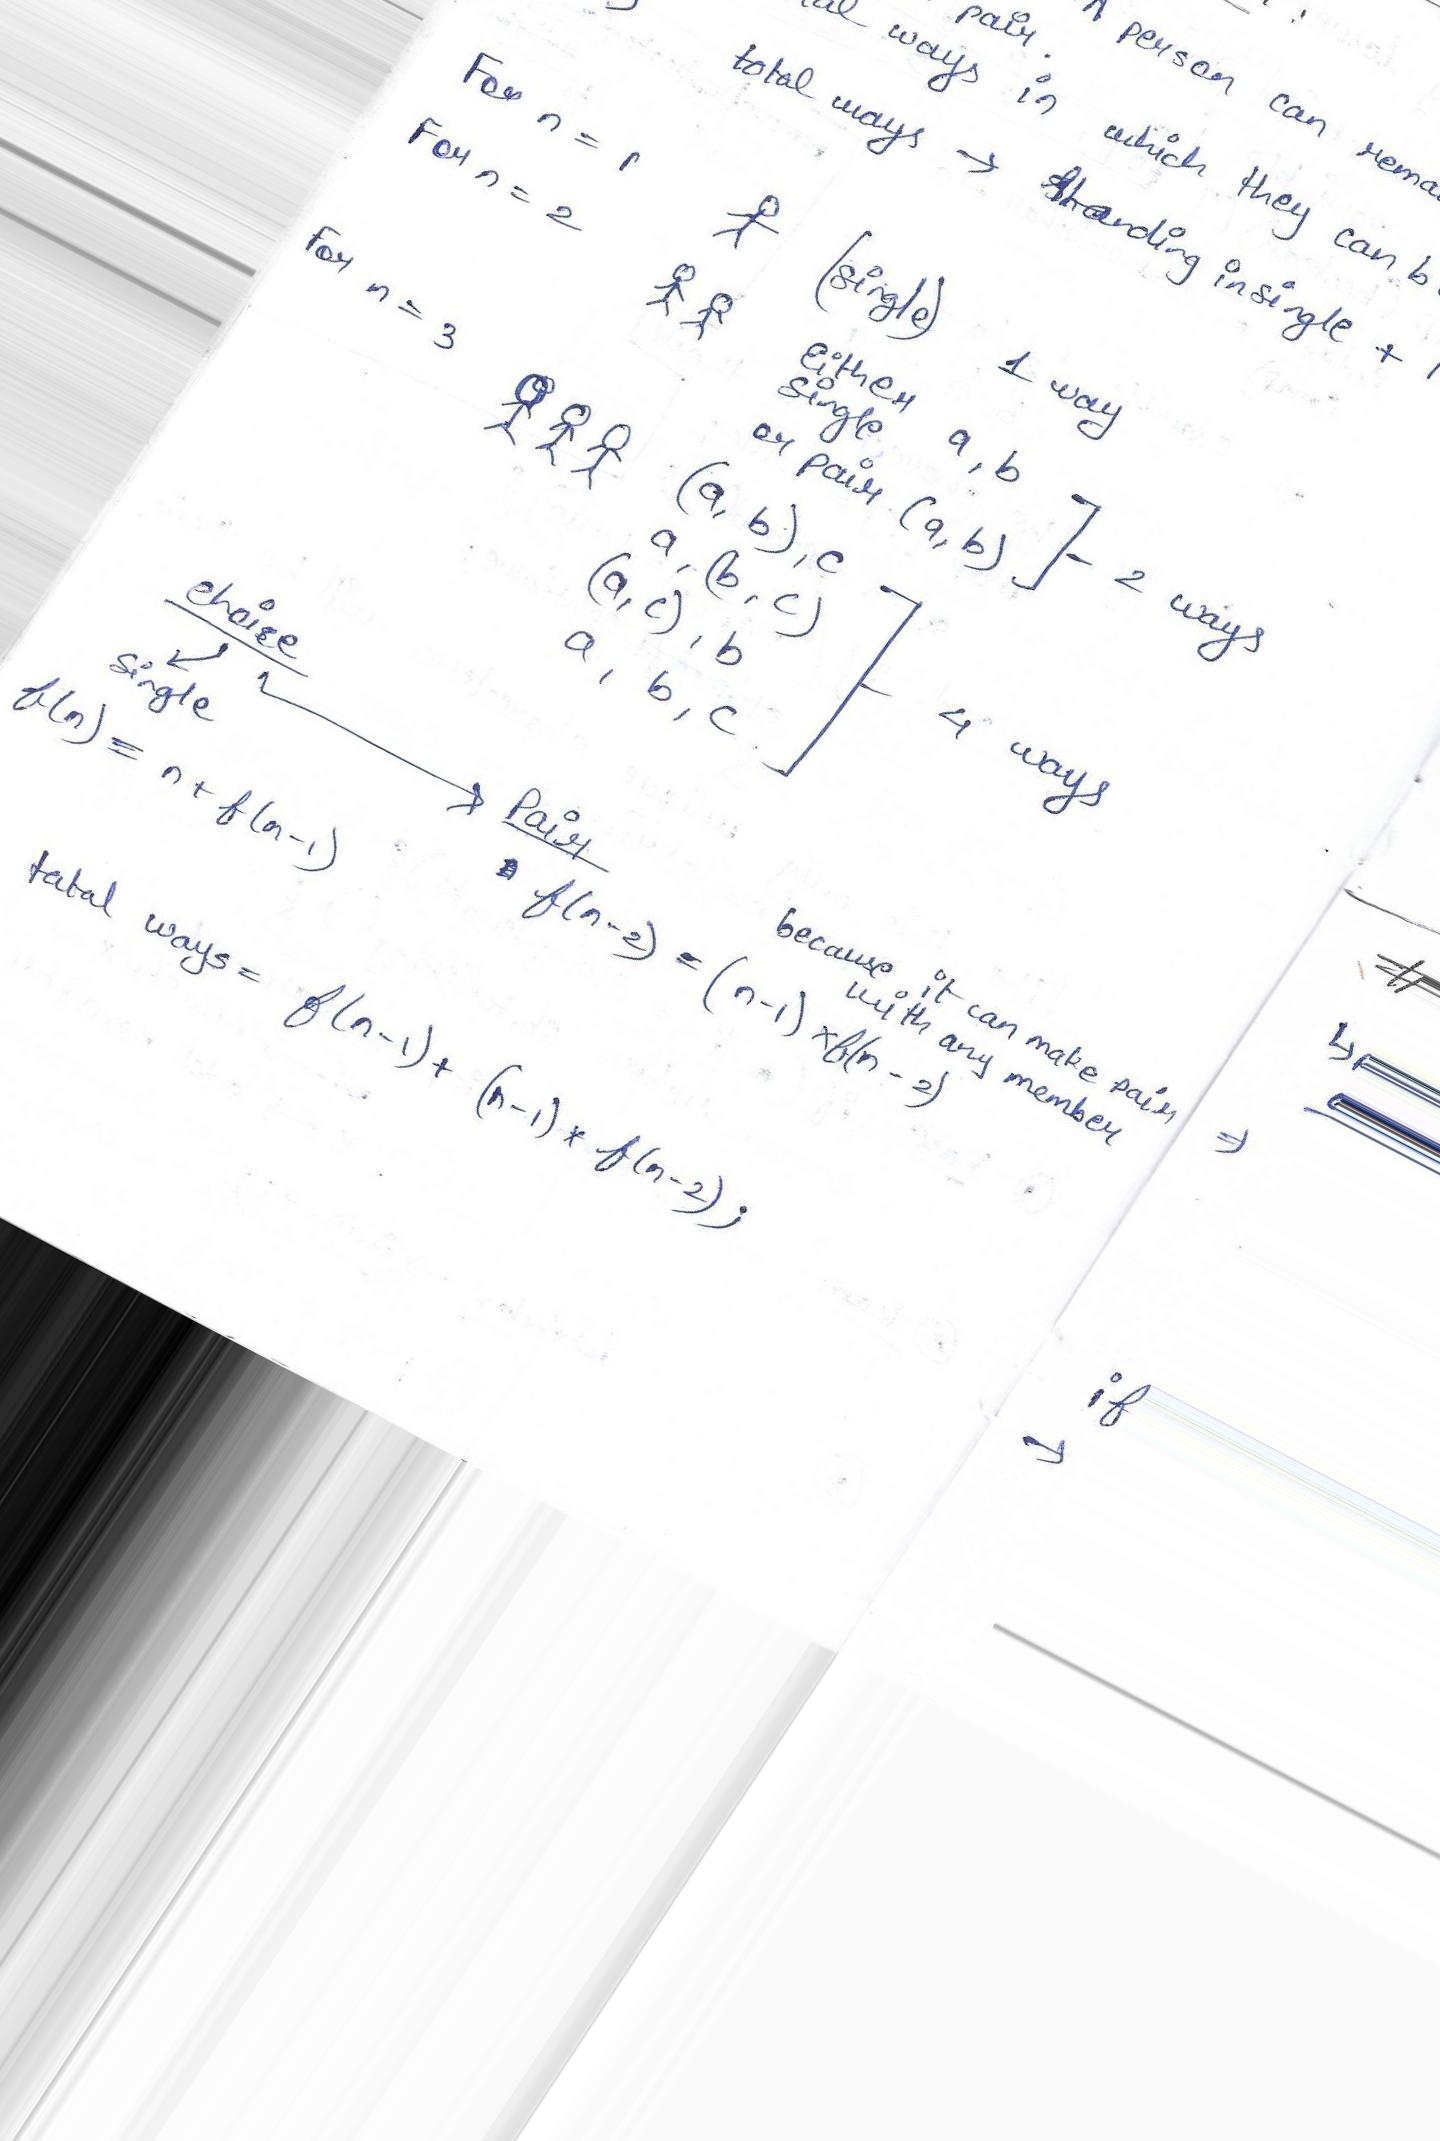 A person can
pair.
ways in which they can b
total ways → Standing in single +
For n = 1 (single) 1 way
For n = 2 Either single a, b
or pair (a, b) ] - 2 ways
For n = 3 (a, b), c
a, (b, c)
(a, c), b
a, b, c ] - 4 ways
choice
single
Pair
f(n) = n + f(n-1)
f(n-2) = (n-1) * f(n-2)
because it can make pair
with any member
total ways = f(n-1) + (n-1) * f(n-2);
#
↳
⇒
if
→